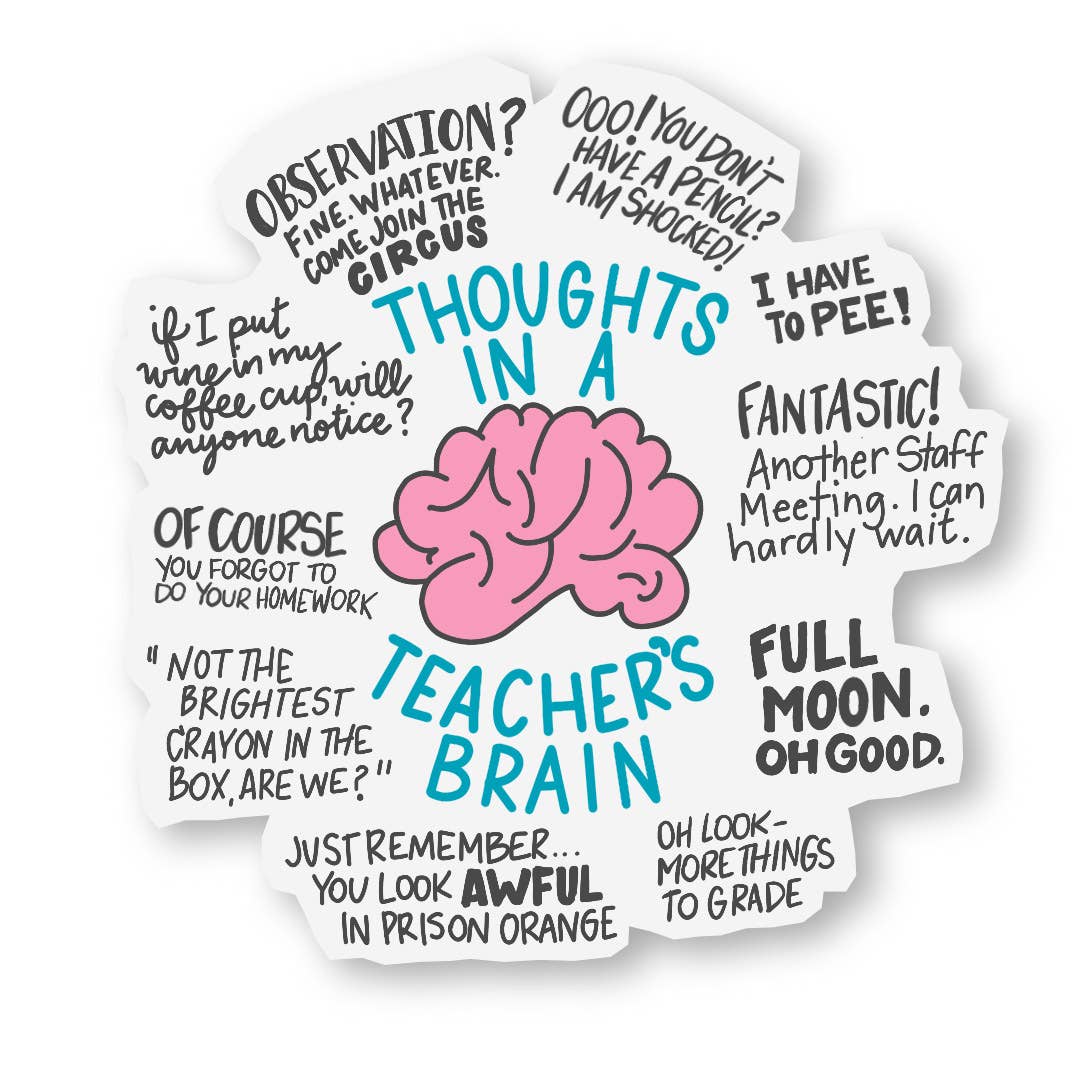 OBSERVATION?
FINE. WHATEVER.
COME JOIN THE
CIRCUS
OOO! YOU DON'T
HAVE A PENCIL?
I AM SHOCKED!
THOUGHTS
IN A
TEACHER'S
BRAIN
I HAVE
TO PEE!
if I put
wine in my
coffee cup, will
anyone notice?
FANTASTIC!
Another Staff
Meeting. I can
hardly wait.
OF COURSE
YOU FORGOT TO
DO YOUR HOMEWORK
FULL
MOON.
OH GOOD.
"NOT THE
BRIGHTEST
CRAYON IN THE
BOX, ARE WE?"
JUST REMEMBER...
YOU LOOK AWFUL
IN PRISON ORANGE
OH LOOK-
MORE THINGS
TO GRADE